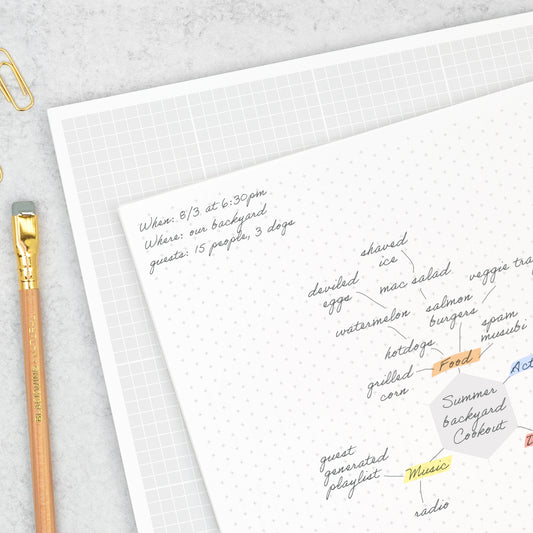 When: 8/3 at 6:30pm
Where: our backyard
guests: 15 people, 3 dogs
shaved
ice
deviled
eggs
mac salad
veggie
watermelon
salmon
burgers
spam
musubi
hotdogs
grilled
corn
Food
Summer
backyard
Cookout
guest
generated
playlist
Music
radio